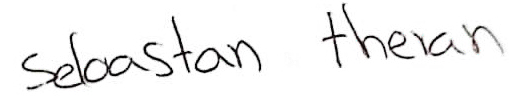 Sebastan theran